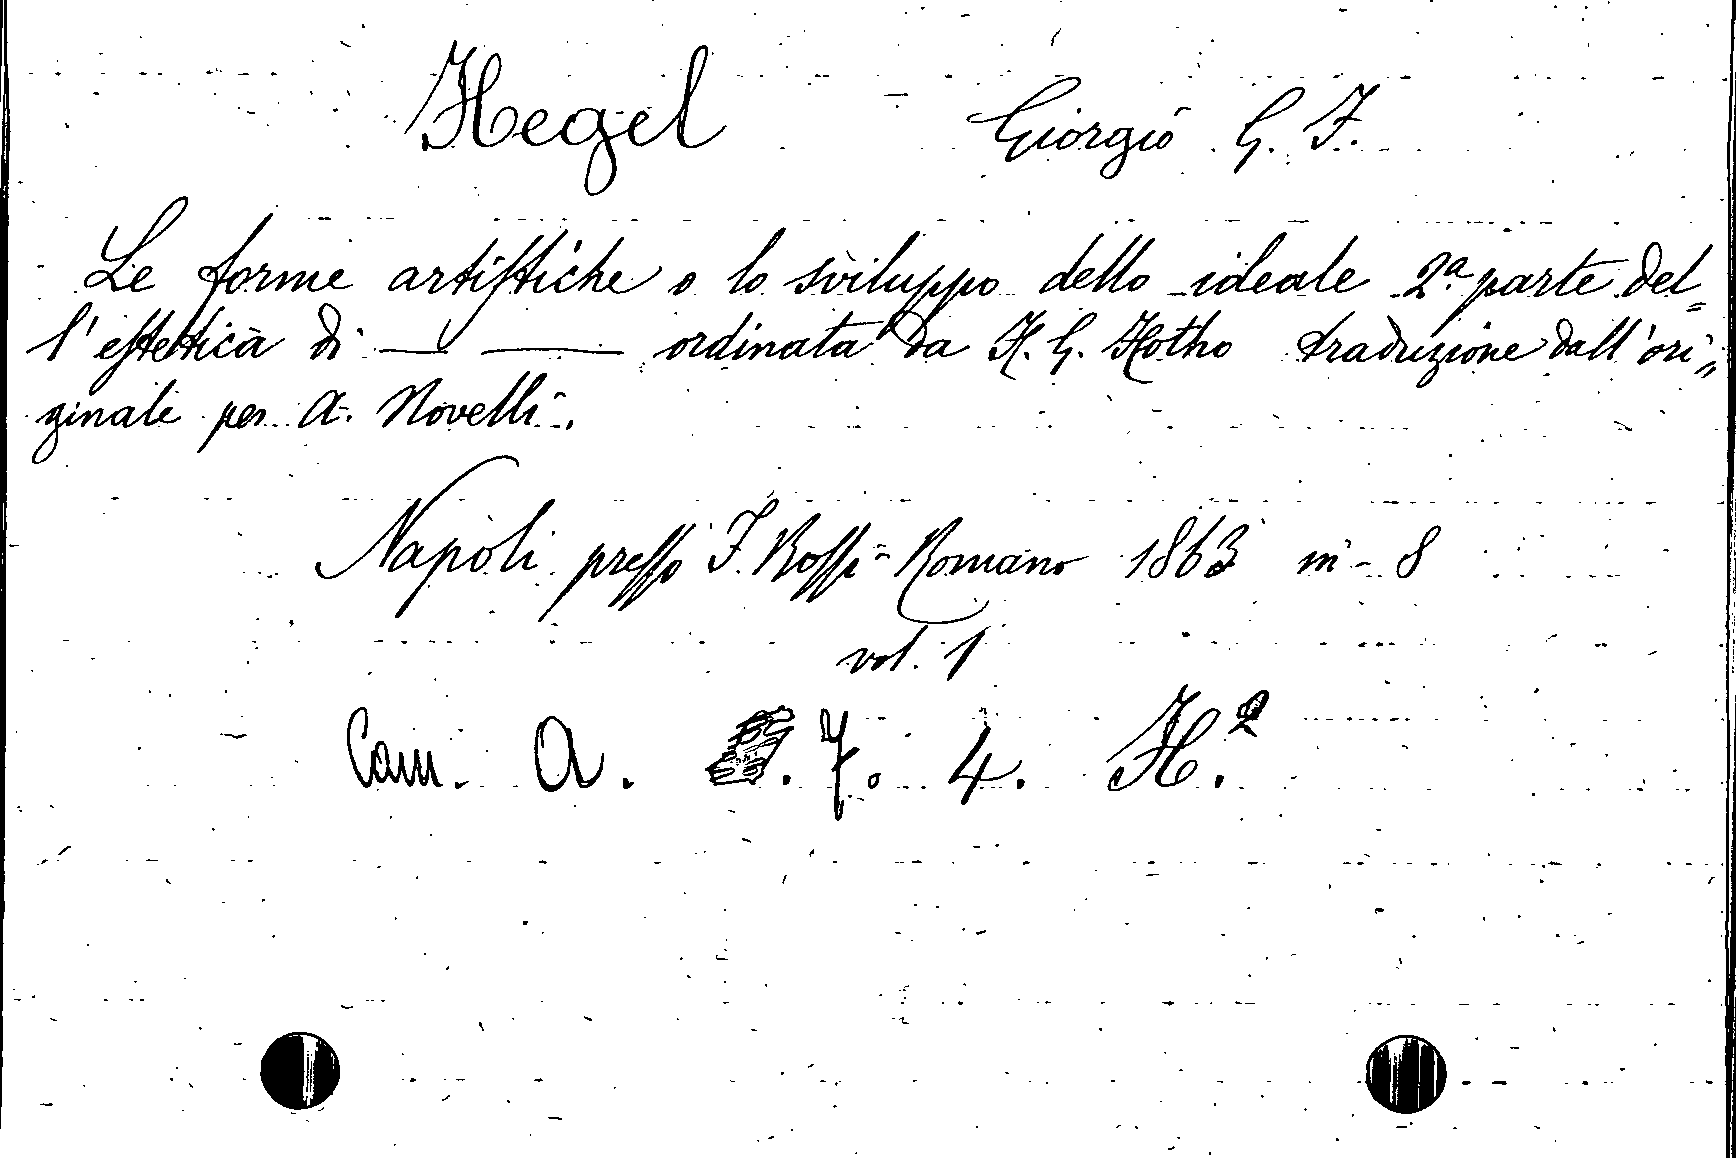 Hegel Giorgio G. F.
Le forme artistiche o lo sviluppo dello ideale 2ª parte del=
l'estetica di — — ordinata da H. G. Hotho traduzione dall'ori=
ginale per A. Novelli.
Napoli presso F. Rossi-Romano 1863 in-8
vol. 1
Cam. A. 7. 4. H.2